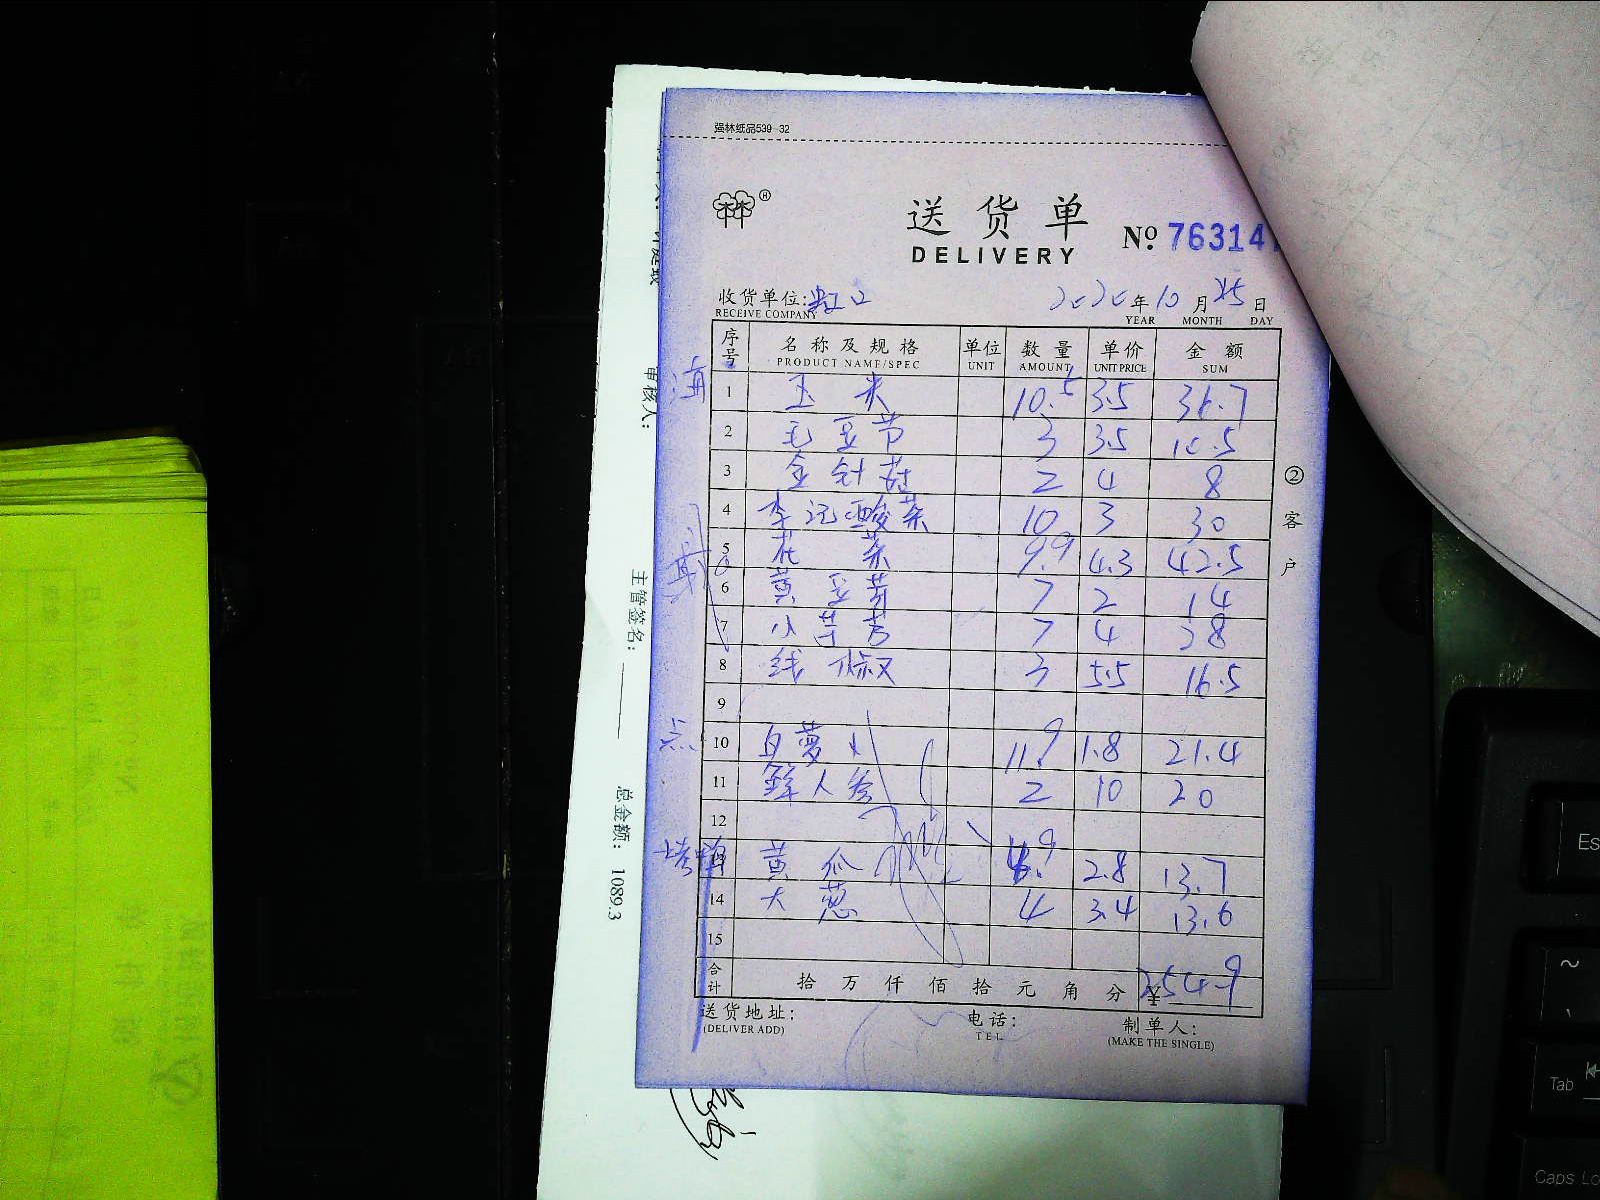 强林纸品539-32
送货单
DELIVERY
No. 76314
收货单位:虹口
RECEIVE COMPANY
2020年10月25日
YEAR MONTH DAY
序号 名称及规格 单位 数量 单价 金额
PRODUCT NAME/SPEC UNIT AMOUNT UNIT PRICE SUM
1 玉米 10.5 3.5 36.7
2 毛豆节 3 3.5 10.5
3 金针菇 2 4 8
4 李记酸菜 10 3 30
5 花菜 9.9 4.3 42.5
6 黄豆芽 7 2 14
7 小芋艿 7 4 28
8 线椒 3 5.5 16.5
9
10 白萝卜 11.9 1.8 21.4
11 鲜人参 2 10 20
12
黄瓜 4.9 2.8 13.7
14 大葱 4 3.4 13.6
15
合计 拾万仟佰拾元角分 ¥254.9
送货地址:
(DELIVER ADD)
电话:
TEL
制单人:
(MAKE THE SINGLE)
②客户
审核人:
主管签名:
总金额: 1089.3
Es
~
Tab
Caps Lo